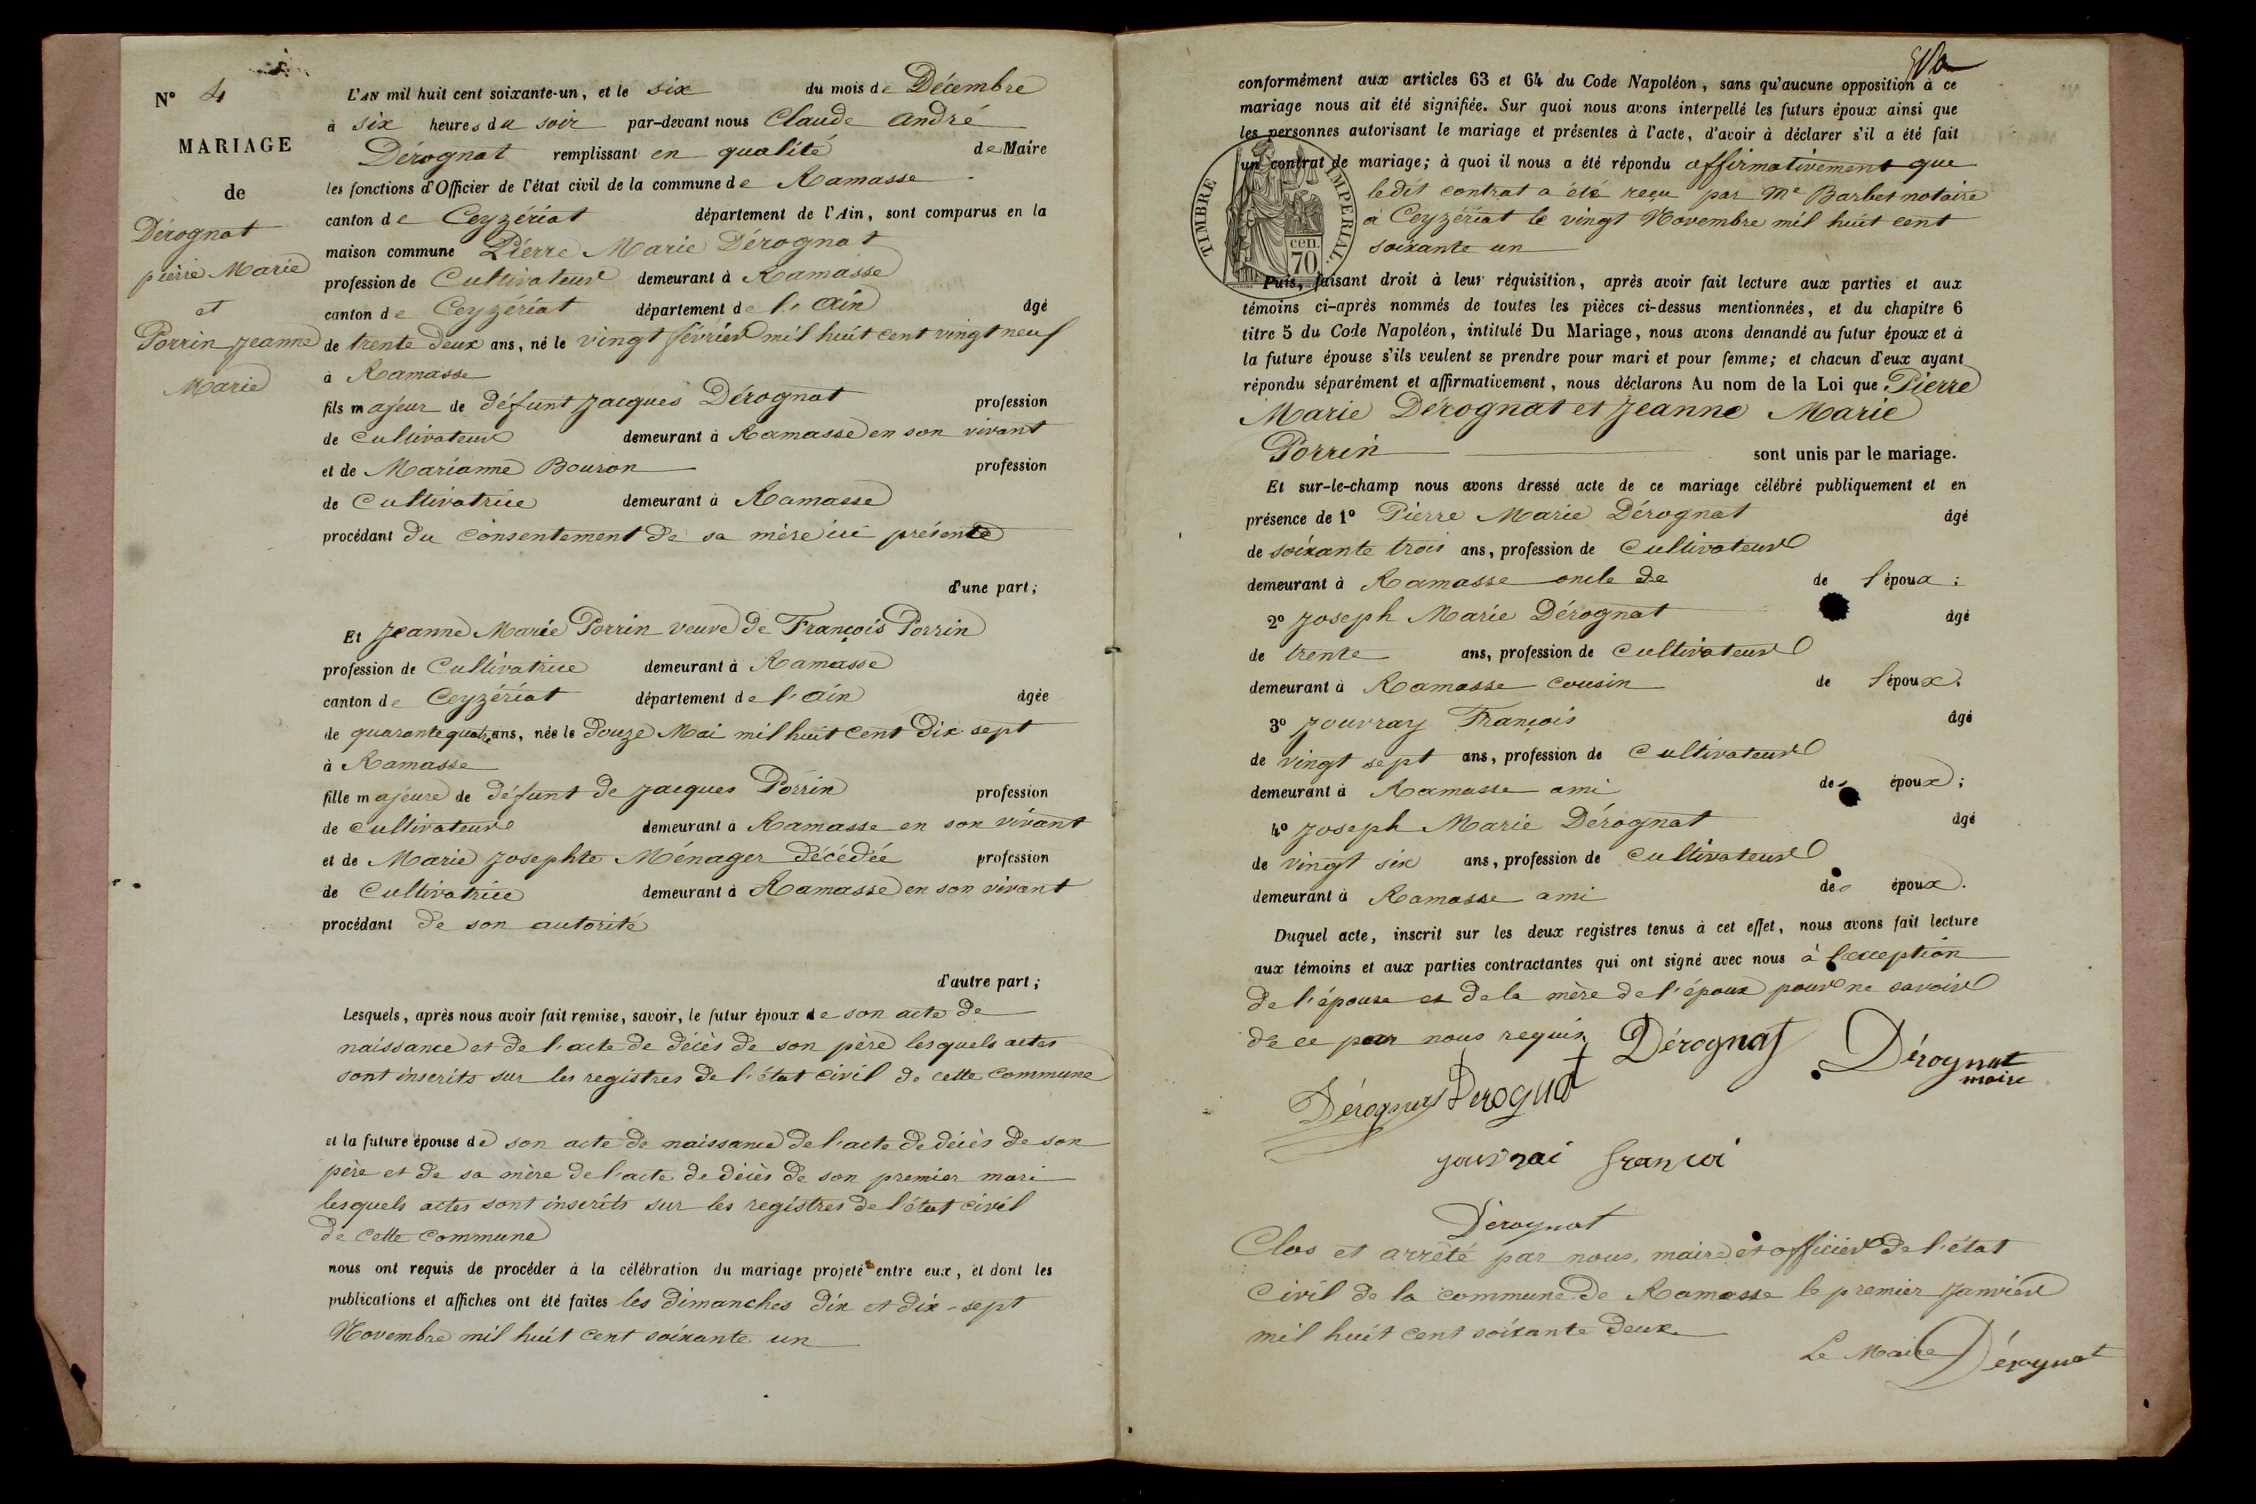 N° 4
MARIAGE
de
Dérognat
pierre Marie
et
Porrin Jeanne
Marie
L'AN mil huit cent soixante-un, et le six du mois de Décembre
à six heures du soir par-devant nous Claude André
Dérognat remplissant en qualité de Maire
les fonctions d'Officier de l'état civil de la commune de Ramasse
canton de Ceyzériat département de l'Ain, sont comparus en la
maison commune Pierre Marie Dérognat
profession de Cultivateur demeurant à Ramasse
canton de Ceyzériat département de l'Ain âgé
de trente deux ans, né le vingt février mil huit cent vingt neuf
à Ramasse
fils majeur de défunt Jacques Dérognat profession
de Cultivateur demeurant à Ramasse en son vivant
et de Marianne Bouron profession
de Cultivatrice demeurant à Ramasse
procédant du consentement de sa mère ici présente
d'une part;
Et Jeanne Marie Porrin veuve de François Porrin
profession de Cultivatrice demeurant à Ramasse
canton de Ceyzériat département de l'Ain âgée
de quarante quatre ans, née le Douze Mai mil huit cent Dix sept
à Ramasse
fille majeure de défunt de Jacques Porrin profession
de cultivateur demeurant à Ramasse en son vivant
et de Marie Josephte Ménager décédée profession
de Cultivatrice demeurant à Ramasse en son vivant
procédant de son autorité
d'autre part;
Lesquels, après nous avoir fait remise, savoir, le futur époux de son acte de
naissance et de l'acte de décès de son père lesquels actes
sont inscrits sur les registres de l'état civil de cette commune
et la future épouse de son acte de naissance de l'acte de décès de son
père et de sa mère de l'acte de décès de son premier mari
lesquels actes sont inscrits sur les registres de l'état civil
de cette commune
nous ont requis de procéder à la célébration du mariage projeté entre eux, et dont les
publications et affiches ont été faites les dimanches dix et dix-sept
Novembre mil huit cent soixante un
conformément aux articles 63 et 64 du Code Napoléon, sans qu'aucune opposition à ce
mariage nous ait été signifiée. Sur quoi nous avons interpellé les futurs époux ainsi que
les personnes autorisant le mariage et présentes à l'acte, d'avoir à déclarer s'il a été fait
un contrat de mariage; à quoi il nous a été répondu affirmativement que
le dit contrat a été reçu par Me Barbet notaire
à Ceyzériat le vingt Novembre mil huit cent
soixante un
TIMBRE IMPERIAL.
cen.
70
Puis, faisant droit à leur réquisition, après avoir fait lecture aux parties et aux
témoins ci-après nommés de toutes les pièces ci-dessus mentionnées, et du chapitre 6
titre 5 du Code Napoléon, intitulé Du Mariage, nous avons demandé au futur époux et à
la future épouse s'ils veulent se prendre pour mari et pour femme; et chacun d'eux ayant
répondu séparément et affirmativement, nous déclarons Au nom de la Loi que Pierre
Marie Dérognat et Jeanne Marie
Porrin sont unis par le mariage.
Et sur-le-champ nous avons dressé acte de ce mariage célébré publiquement et en
présence de 1° Pierre Marie Dérognat âgé
de soixante trois ans, profession de Cultivateur
demeurant à Ramasse oncle de de l'époux;
2° Joseph Marie Dérognat âgé
de trente ans, profession de Cultivateur
demeurant à Ramasse cousin de l'époux;
3° Jouvray François âgé
de vingt sept ans, profession de Cultivateur
demeurant à Ramasse ami des époux;
4° Joseph Marie Dérognat âgé
de vingt six ans, profession de Cultivateur
demeurant à Ramasse ami des époux.
Duquel acte, inscrit sur les deux registres tenus à cet effet, nous avons fait lecture
aux témoins et aux parties contractantes qui ont signé avec nous à l'exception
de l'épouse et de la mère de l'époux pour ne savoir
de ce par nous requis
Dérognat Dérognat
maire
Dérognat Derognat
jouvrai françoi
Dérognat
Clos et arrêté par nous, maire et officier de l'état
civil de la commune de Ramasse le premier Janvier
mil huit cent soixante deux
Le Maire Dérognat